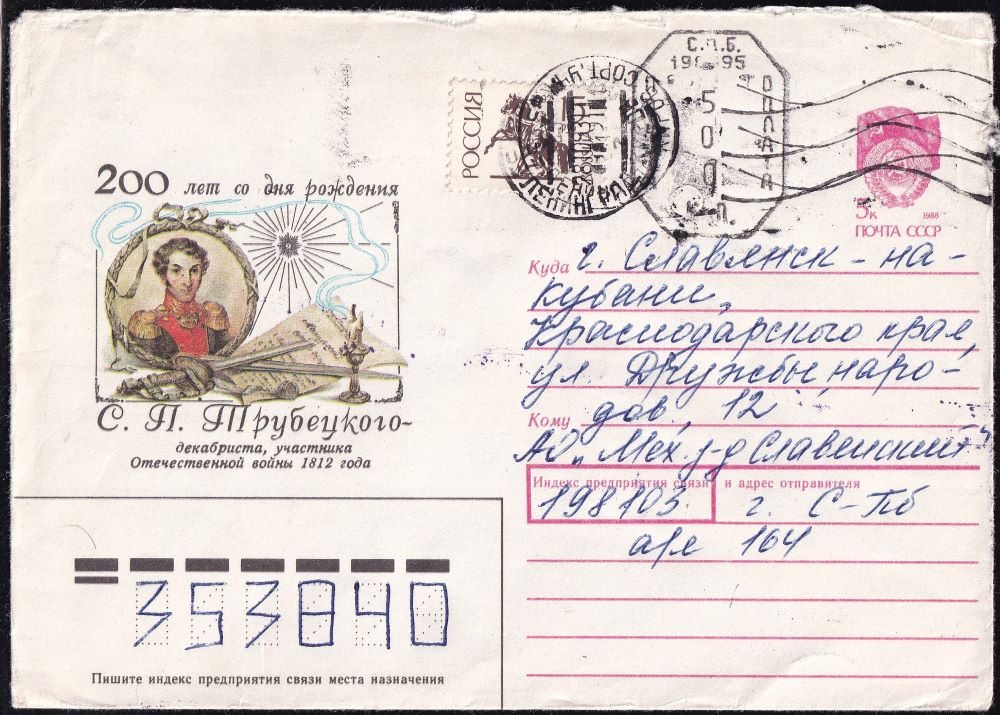 200 лет со дня рождения
С. П. Трубецкого-
декабриста, участника
Отечественной войны 1812 года
РОССИЯ
ЛЕНИНГРАД
С.П.Б.
500
ОПЛАТА
5к 1988
ПОЧТА СССР
Куда г. Славянск-на-
Кубани,
Краснодарского края,
ул. Дружбы наро-
Кому дов, 12
АО „Мех. з-д Славянский"
Индекс предприятия связи и адрес отправителя
198103. г. С-Пб
а/я 164
353840
Пишите индекс предприятия связи места назначения